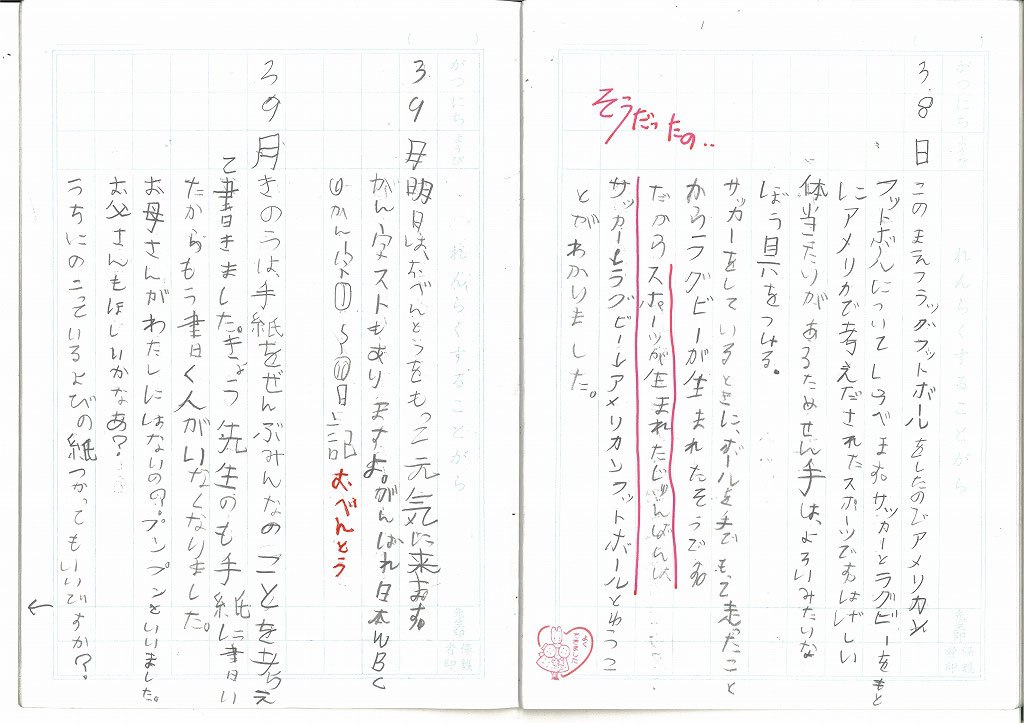 がつにち
ようび
れんらくすることがら
3.8日 このまえフラッグフットボールをしたのでアメリカン
フットボールについてしらべますサッカーとラグビーをもと
にアメリカで考えだされたスポーツですはげしい
体当たりがあるためせん手は、よろいみたいな
ぼう具をつける。
サッカーをしているときに、ボールを手でもって走ったこと
からラグビーが生まれたそうです
だからスポーツが生まれたじゅんばんは、
サッカー→ラグビー→アメリカンフットボールというこ
とがわかりました。
そうだったの..
よくできました
がつにち
ようび
れんらくすることがら
3 9 日 明日は、おべんとうをもって元気に来ます。
がん字テストもあります よ。がんばれ日本WBC
㋵かん
むべんとう
3 9 月 きのうは、手紙をぜんぶみんなのことを考え
て書きました。きょう先生のも手紙に書い
たからもう書く人がいなくなりました。
お母さんがわたしにはないの?プンプンといいました。
お父さんもほしいかなあ?
うちにのこっているよびの紙つかってもいいですか?
←